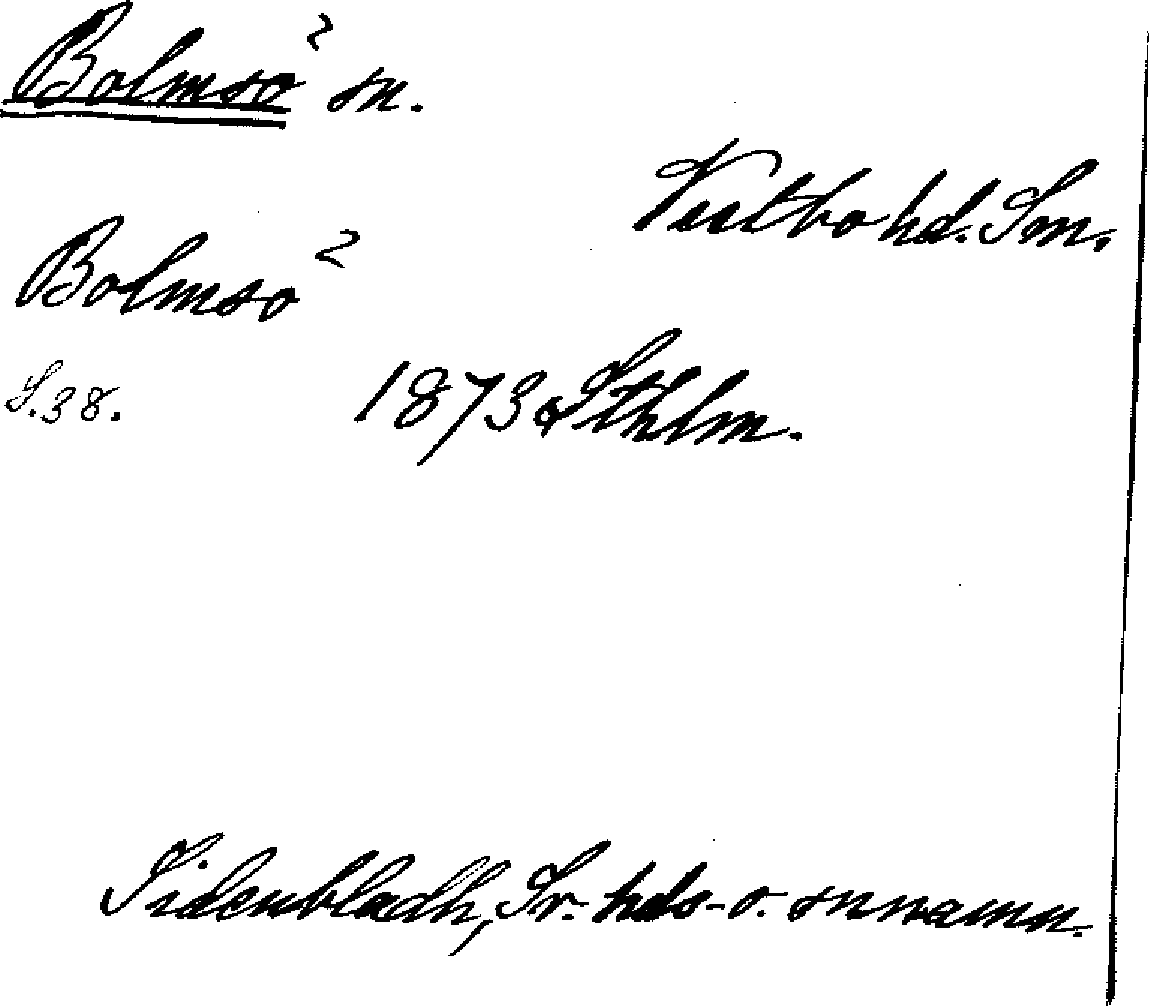 Bolmsö sn.
Vestbo hd. Sm.
Bolmsö
S. 38. 1873 Sthlm.
Sidenbladh, Sv. hds- o. snnamn.